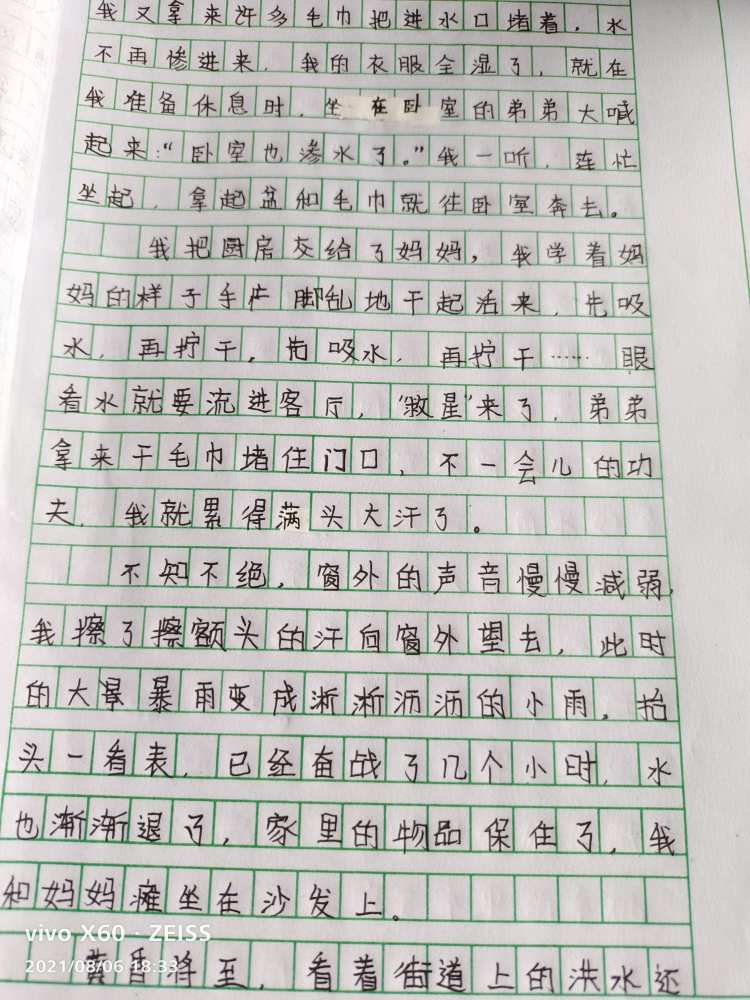 我又拿来许多毛巾把进水口堵着，水
不再渗进来，我的衣服全湿了，就在
我准备休息时，坐在卧室的弟弟大喊
起来：“卧室也渗水了。”我一听，连忙
坐起，拿起盆和毛巾就往卧室奔去。
我把厨房交给了妈妈，我学着妈
妈的样子手忙脚乱地干起活来，先吸
水，再拧干，先吸水，再拧干……眼
看水就要流进客厅，“救星”来了，弟弟
拿来干毛巾堵住门口，不一会儿的功
夫，我就累得满头大汗了。
不知不绝，窗外的声音慢慢减弱，
我擦了擦额头的汗向窗外望去，此时
的大暴雨变成淅淅沥沥的小雨，抬
头一看表，已经奋战了几个小时，水
也渐渐退了，家里的物品保住了，我
和妈妈瘫坐在沙发上。
vivo X60 · ZEISS
2021/08/06 18:33
黄昏将至，看着街道上的洪水还